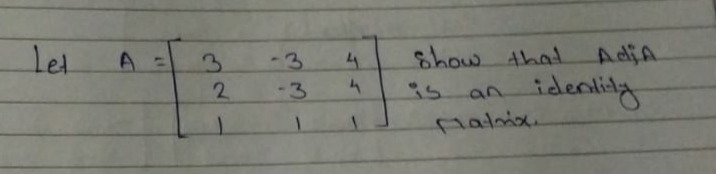 Let A = [ 3 -3 4 ] Show that AdjA
2 -3 4 is an identity
1 1 1 Matrix.